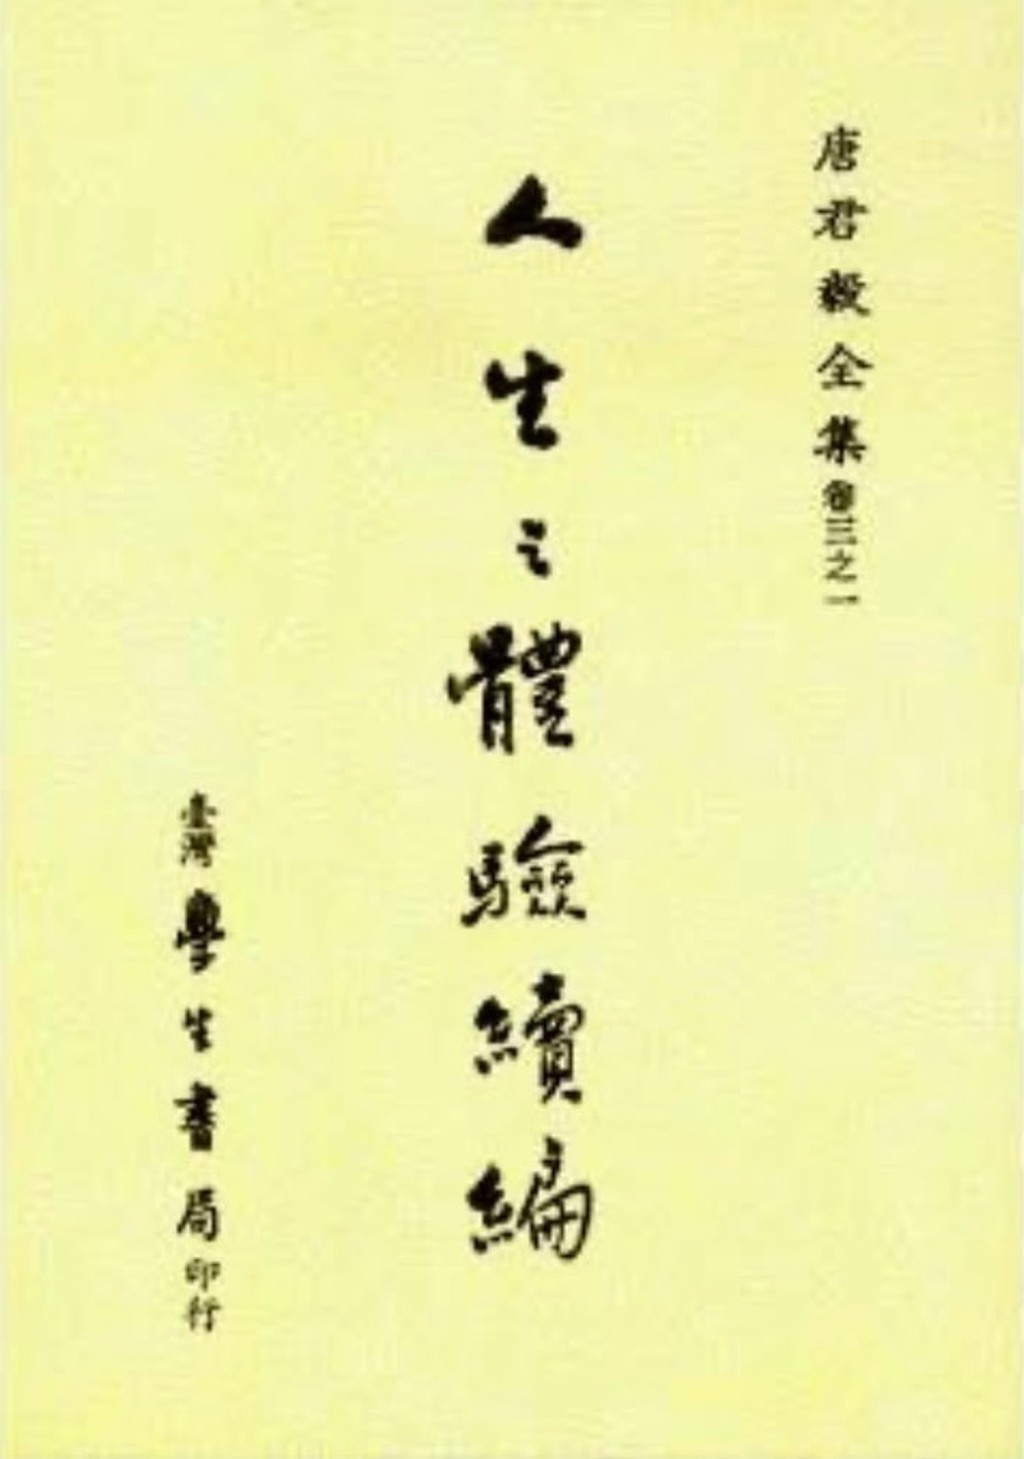 唐君毅全集卷三之一
人生之體驗續編
臺灣學生書局印行